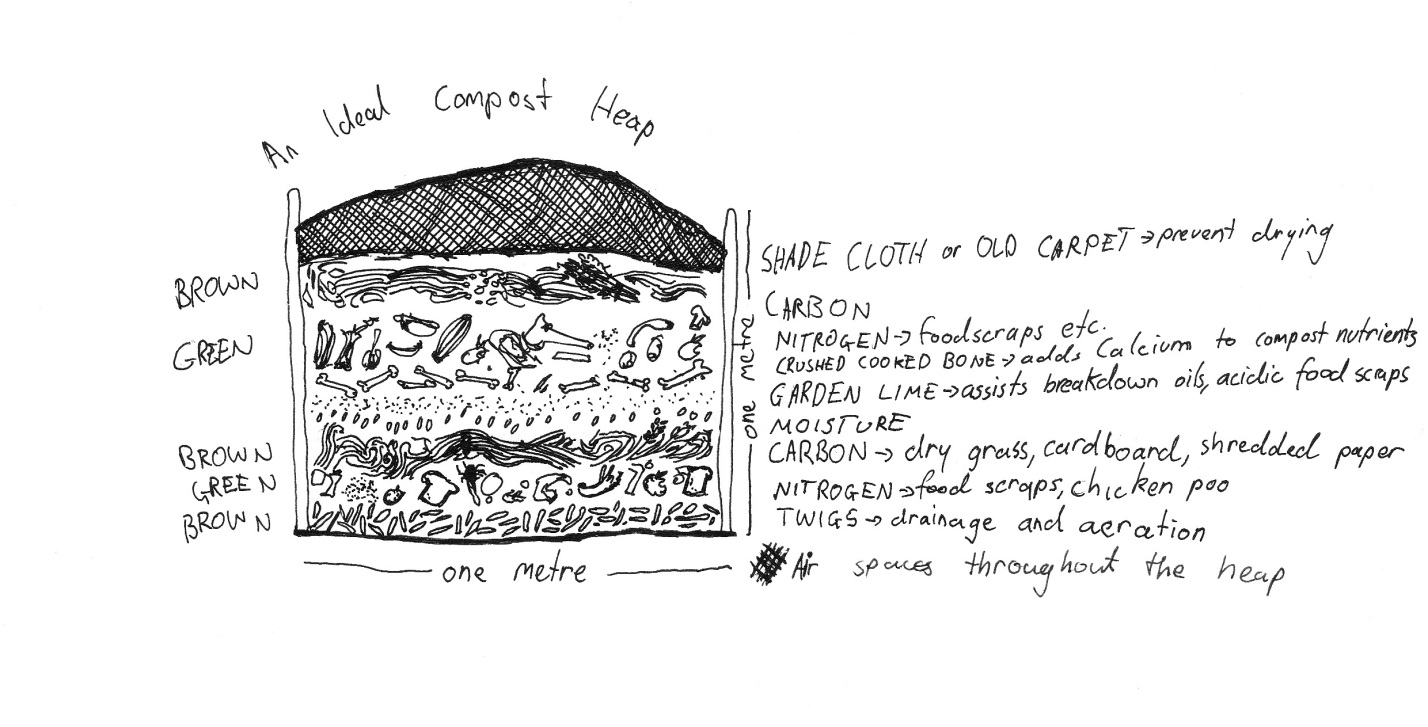 An Ideal Compost Heap
SHADE CLOTH or OLD CARPET → prevent drying
BROWN
CARBON
GREEN
NITROGEN → foodscraps etc.
CRUSHED COOKED BONE → adds Calcium to compost nutrients
GARDEN LIME → assists breakdown oils, acidic food scraps
MOISTURE
BROWN
CARBON → dry grass, cardboard, shredded paper
GREEN
NITROGEN → food scraps, chicken poo
BROWN
TWIGS → drainage and aeration
one metre
one metre
Air spaces throughout the heap